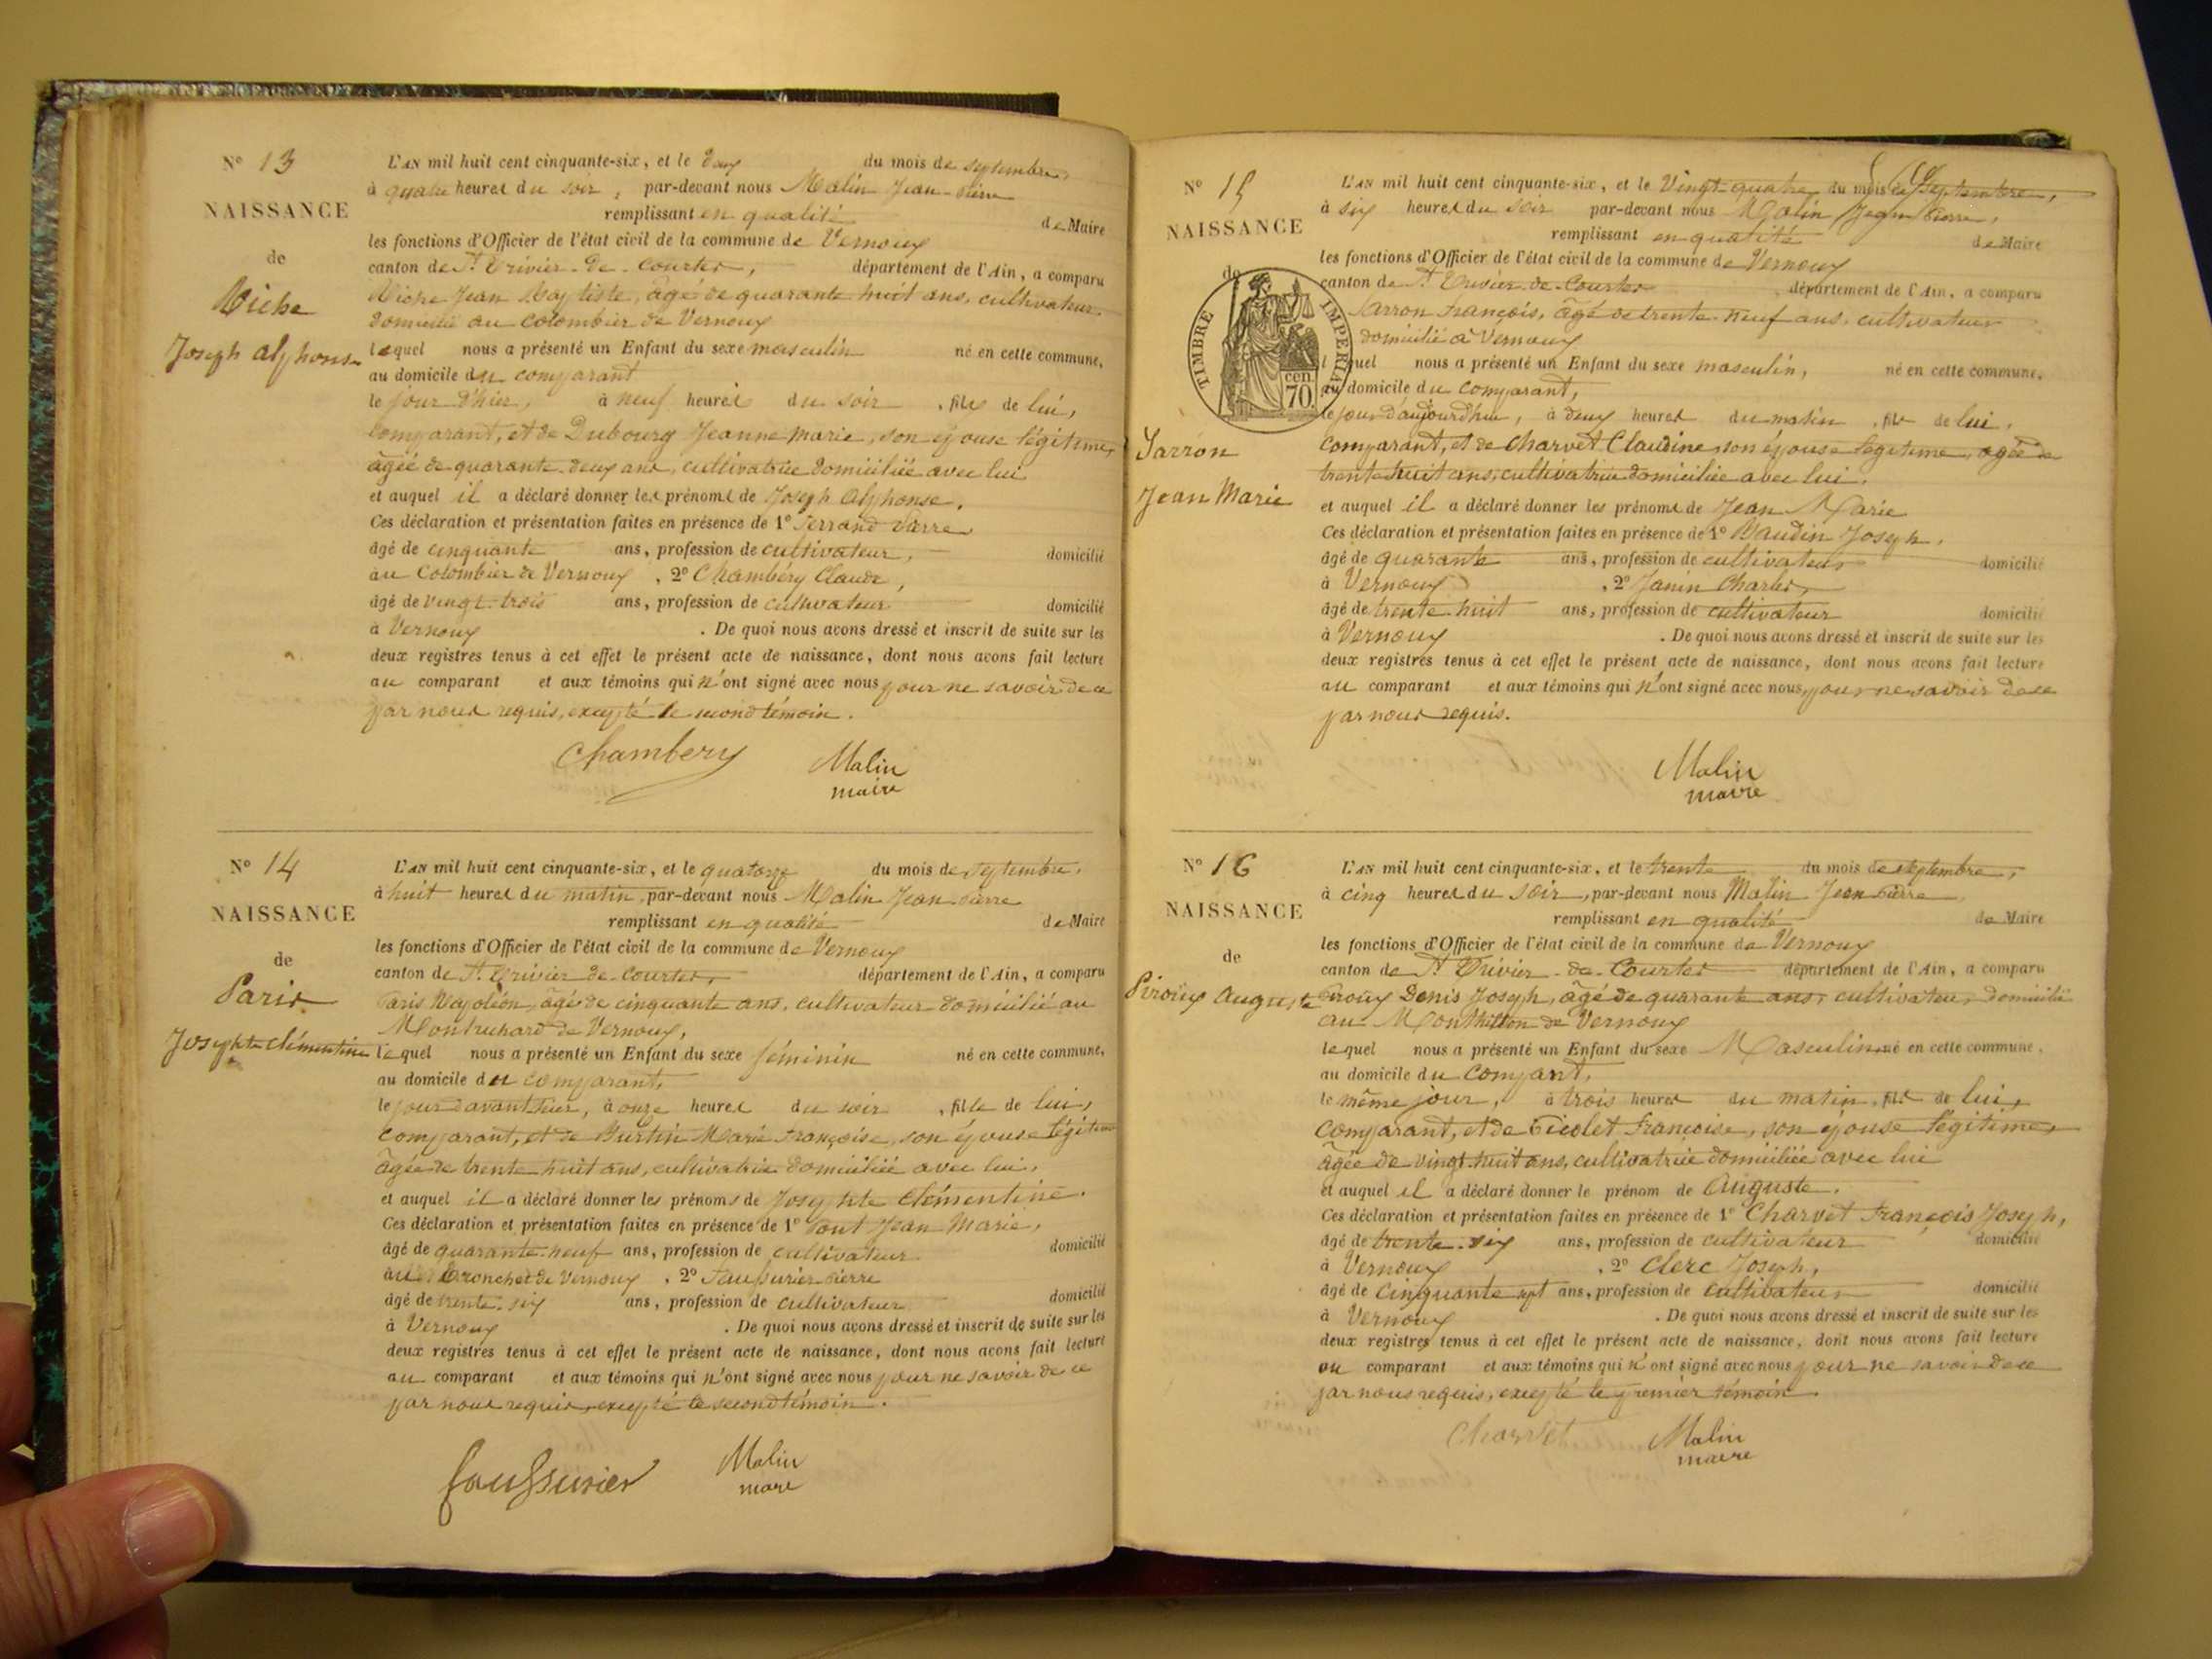 N° 13
NAISSANCE
de
Riche
Joseph alphonse
L'AN mil huit cent cinquante-six, et le deux du mois de septembre,
à quatre heures du soir, par-devant nous Malin Jean-Pierre
remplissant en qualité de Maire
les fonctions d'Officier de l'état civil de la commune de Vernoux
canton de St. Trivier-de-Courtes, département de l'Ain, a comparu
Riche Jean Baptiste, âgé de quarante huit ans, cultivateur
domicilié au colombier de Vernoux
lequel nous a présenté un Enfant du sexe masculin né en cette commune,
au domicile du comparant
le jour d'hier, à neuf heures du soir, fils de lui,
comparant, et de Dubourg Jeanne marie, son épouse légitime,
âgée de quarante-deux ans, cultivatrice domiciliée avec lui
et auquel il a déclaré donner les prénoms de Joseph Alphonse.
Ces déclaration et présentation faites en présence de 1° Ferrand
âgé de cinquante ans, profession de cultivateur, domicilié
au Colombier de Vernoux, 2° Chambéry Claude,
âgé de vingt-trois ans, profession de cultivateur domicilié
à Vernoux. De quoi nous avons dressé et inscrit de suite sur les
deux registres tenus à cet effet le présent acte de naissance, dont nous avons fait lecture
au comparant et aux témoins qui n'ont signé avec nous pour ne savoir de ce
par nous requis, excepté le second témoin.
Chambery Malin
maire
N° 14
NAISSANCE
de
Paris
Josephte clémentine
L'AN mil huit cent cinquante-six, et le quatorze du mois de septembre,
à huit heures du matin, par-devant nous Malin Jean-Pierre
remplissant en qualité de Maire
les fonctions d'Officier de l'état civil de la commune de Vernoux
canton de St. Trivier-de-Courtes, département de l'Ain, a comparu
Paris Napoléon, âgé de cinquante ans, cultivateur domicilié au
de Vernoux,
lequel nous a présenté un Enfant du sexe féminin né en cette commune,
au domicile du comparant,
le jour d'avant hier, à onze heures du soir, fille de lui,
comparant, et de Burtin Marie Françoise, son épouse légitime
âgée de trente huit ans, cultivatrice domiciliée avec lui,
et auquel il a déclaré donner les prénoms de Josephte Clémentine.
Ces déclaration et présentation faites en présence de 1° Pont Jean Marie,
âgé de quarante-neuf ans, profession de cultivateur domicilié
au de Vernoux, 2° Faussurier Pierre
âgé de trente-six ans, profession de cultivateur domicilié
à Vernoux. De quoi nous avons dressé et inscrit de suite sur les
deux registres tenus à cet effet le présent acte de naissance, dont nous avons fait lecture
au comparant et aux témoins qui n'ont signé avec nous pour ne savoir de ce
par nous requis, excepté le second témoin.
faussurier Malin
maire
N° 15
NAISSANCE
de
TIMBRE IMPERIAL
cen.
70.
Sarron
Jean Marie
L'AN mil huit cent cinquante-six, et le Vingt-quatre du mois de septembre,
à six heures du soir par-devant nous Malin Jean Pierre,
remplissant en qualité de Maire
les fonctions d'Officier de l'état civil de la commune de Vernoux
canton de St Trivier-de-Courtes département de l'Ain, a comparu
Sarron François, âgé de trente-neuf ans, cultivateur
domicilié à Vernoux
lequel nous a présenté un Enfant du sexe masculin, né en cette commune,
au domicile du comparant,
le jour d'aujourd'hui, à deux heures du matin, fils de lui,
comparant, et de Charvet Claudine, son épouse légitime, âgée de
trente huit ans, cultivatrice domiciliée avec lui,
et auquel il a déclaré donner les prénoms de Jean Marie
Ces déclaration et présentation faites en présence de 1° Vaudin Joseph,
âgé de quarante ans, profession de cultivateur domicilié
à Vernoux, 2° Janin Charles,
âgé de trente-huit ans, profession de cultivateur domicilié
à Vernoux. De quoi nous avons dressé et inscrit de suite sur les
deux registres tenus à cet effet le présent acte de naissance, dont nous avons fait lecture
au comparant et aux témoins qui n'ont signé avec nous, pour ne savoir de ce
par nous requis.
Malin
maire
N° 16
NAISSANCE
de
Piroux Auguste
L'AN mil huit cent cinquante-six, et le trente du mois de septembre,
à cinq heures du soir, par-devant nous Malin Jean Pierre,
remplissant en qualité de Maire
les fonctions d'Officier de l'état civil de la commune de Vernoux
canton de St Trivier-de-Courtes département de l'Ain, a comparu
Piroux Denis Joseph, âgé de quarante ans, cultivateur, domicilié
au de Vernoux
lequel nous a présenté un Enfant du sexe Masculin né en cette commune,
au domicile du compant,
le même jour, à trois heures du matin, fils de lui,
comparant, et de Ticolet Françoise, son épouse légitime,
âgée de vingt-huit ans, cultivatrice domiciliée avec lui
et auquel il a déclaré donner le prénom de Auguste.
Ces déclaration et présentation faites en présence de 1° Charvet François Joseph,
âgé de trente-six ans, profession de cultivateur domicilié
à Vernoux, 2° Clerc Joseph,
âgé de cinquante sept ans, profession de cultivateur domicilié
à Vernoux. De quoi nous avons dressé et inscrit de suite sur les
deux registres tenus à cet effet le présent acte de naissance, dont nous avons fait lecture
au comparant et aux témoins qui n'ont signé avec nous pour ne savoir de ce
par nous requis, excepté le premier témoin.
Charvet Malin
maire